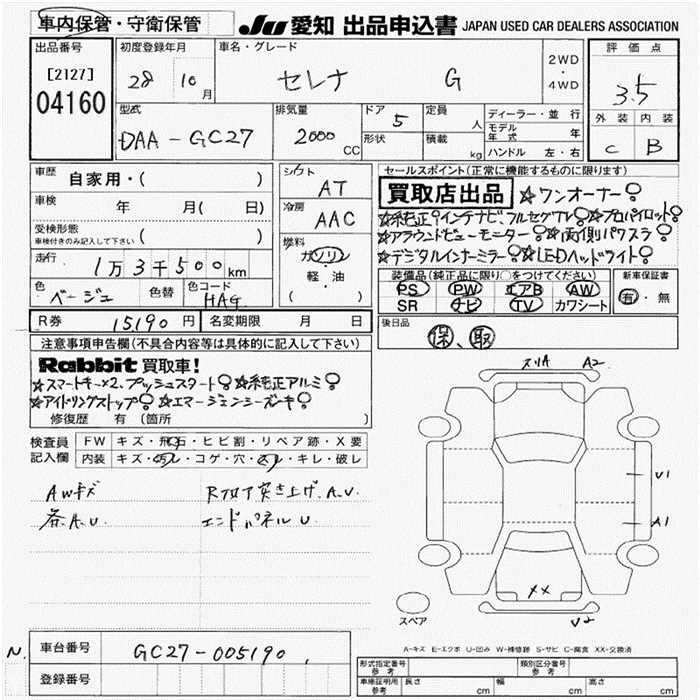 車内保管・守衛保管
JU 愛知 出品申込書 JAPAN USED CAR DEALERS ASSOCIATION
出品番号
[2127]
04160
初度登録年月
28 10月
車名・グレード
セレナ G
2WD
・
4WD
評価点
3.5
外装 内装
C B
型式
DAA-GC27
排気量
2000 CC
ドア 5
形状
定員 人
積載 kg
ディーラー・並行
モデル年式 年
ハンドル 左・右
車歴
自家用・( )
車検 年 月( 日)
受検形態
車検付きのみ記入して下さい ( )
走行
1万3千500km
色
ベージュ
色替
色コード
HAG
シフト
AT
冷房
AAC
燃料
ガソリン
・
軽・油
( )
セールスポイント(正常に機能するものに限ります)
買取店出品 ☆ワンオーナー!
☆純正9インチナビ、フルセグTV! ☆プロパイロット!
☆アラウンドビューモニター! ☆両側パワスラ!
☆デジタルインナーミラー! ☆LEDヘッドライト!
装備品(純正品に限り○をつけてください)
PS PW エアB AW
SR ナビ TV カワシート
新車保証書
有・無
R券 15190円
名変期限 月 日
後日品
保、取
注意事項申告欄(不具合内容等は具体的に記入して下さい)
Rabbit 買取車!
☆スマートキー×2、プッシュスタート! ☆純正アルミ!
☆アイドリングストップ! ☆エマージェンシーブレーキ!
修復歴 有 (箇所 )
検査員
記入欄
FW キズ・飛石・ヒビ割・リペア跡・X要
内装 キズ・汚レ・コゲ・穴・スレ・キレ・破レ
AWキズ
各A.U.
Rフロア突き上げ、A.U.
エンドパネルU.
スリA A2
U1
A1
XX
U2
スペア
A-キズ E-エクボ U-凹み W-補修跡 S-サビ C-腐食 XX-交換済
N.
車台番号 GC27-005190
登録番号
形式指定番号
参考
類別区分番号
参考
車庫証明用
参考
長さ cm 幅 cm 高さ cm